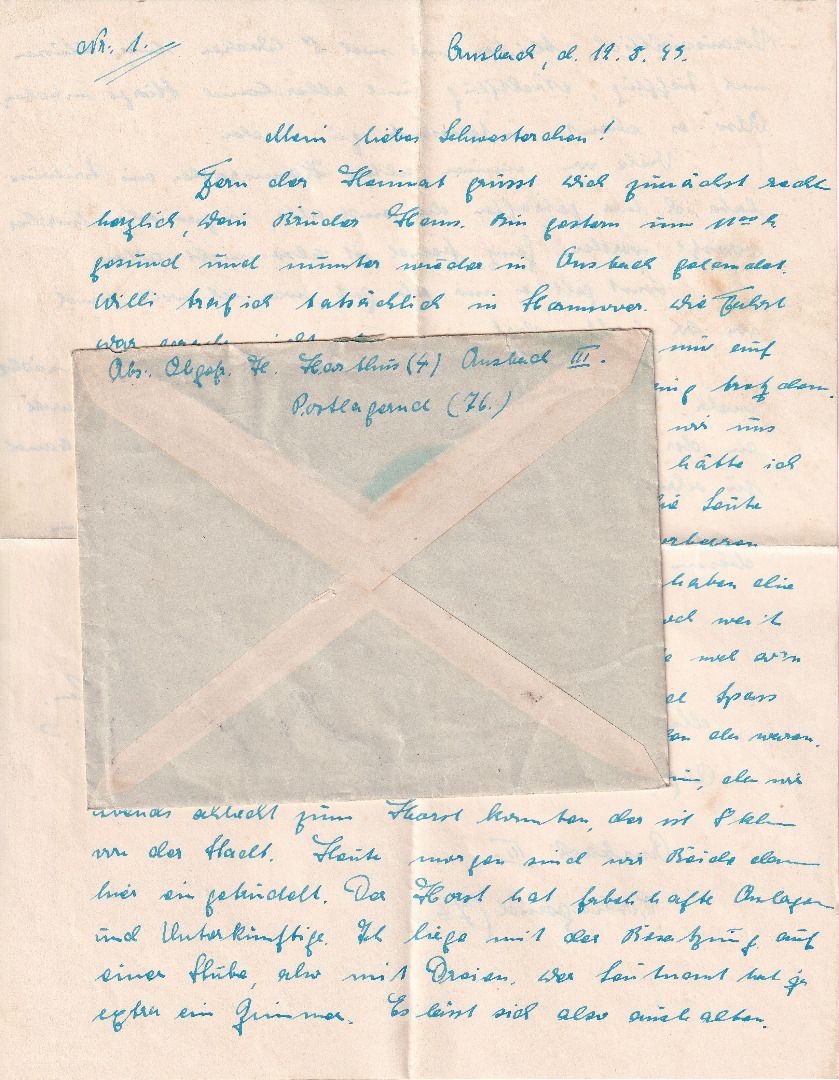 Nr. 1.
Ansbach, d. 12. 5. 43.
Mein liebes Schwesterchen!
Fern der Heimat grüsst Dich zunächst recht
herzlich, Dein Bruder Hans. Bin gestern um 11⁰⁰ h
gesund und munter wieder in Ansbach gelandet.
Willi traf ich tatsächlich in Hannover. Die Fahrt
war
mir auf
trotzdem.
wir uns
hätte ich
die Leute
haben die
noch weit
Spass
da waren.
Abs. Obgefr. H. Harthus (4) Ansbach III.
Postlagernd (76.)
da wir
abends schlecht zum Horst konnten, der ist 8 klm
von der Stadt. Heute morgen sind wir Beide dann
hier eingetrudelt. Der Horst hat fabelhafte Anlagen
und Unterkünftige. Ich liege mit der Besatzung auf
einer Stube, also mit Dreien. Der Leutnant hat ja
extra ein Zimmer. Es lässt sich also aushalten.